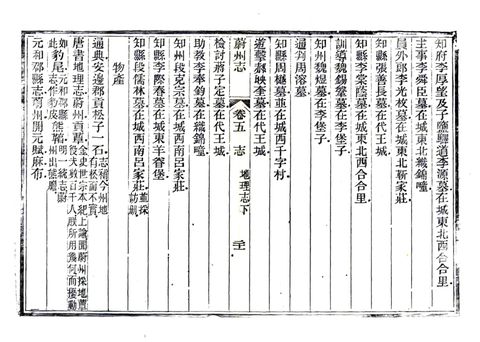 知府李厚望及子鹽驛道李源墓在城東北西合合里
主事李舜臣墓在城東北織錦疃
員外郎李光枚墓在城東北靳家莊
知縣張善長墓在代王城
知縣李棠蔭墓在城東北西合合里
訓導魏錫鑾墓在李堡子
知州魏焜墓在李堡子
通判周溶墓
知縣周樾墓並在城西千字村
道擊蘇映奎墓在代王城
蔚州志
卷五 志 地理志下
二十一
檢討蔣子定墓在代王城
助教李奉鈞墓在織錦疃
知州段克宗墓在城西南呂家莊
知縣李際春墓在城東羊眷堡
知縣段儒林墓在城西南呂家莊
並採訪冊
物產
通典安邊郡貢松子一石
志補今州地有松而不實
唐書地理志蔚州貢
元和郡縣志蔚州開元賦麻布